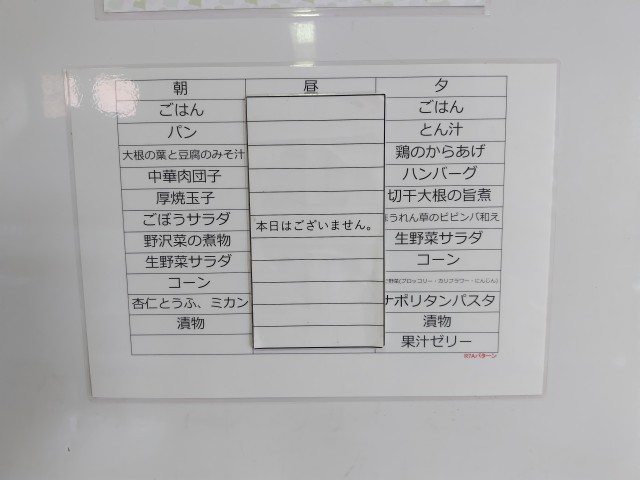 朝 昼 夕
ごはん ごはん
パン とん汁
大根の葉と豆腐のみそ汁 鶏のからあげ
中華肉団子 ハンバーグ
厚焼玉子 切干大根の旨煮
ごぼうサラダ 本日はございません。 ほうれん草のビビンバ和え
野沢菜の煮物 生野菜サラダ
生野菜サラダ コーン
コーン 野菜(ブロッコリー・カリフラワー・にんじん)
杏仁とうふ、ミカン ナポリタンパスタ
漬物 漬物
果汁ゼリー